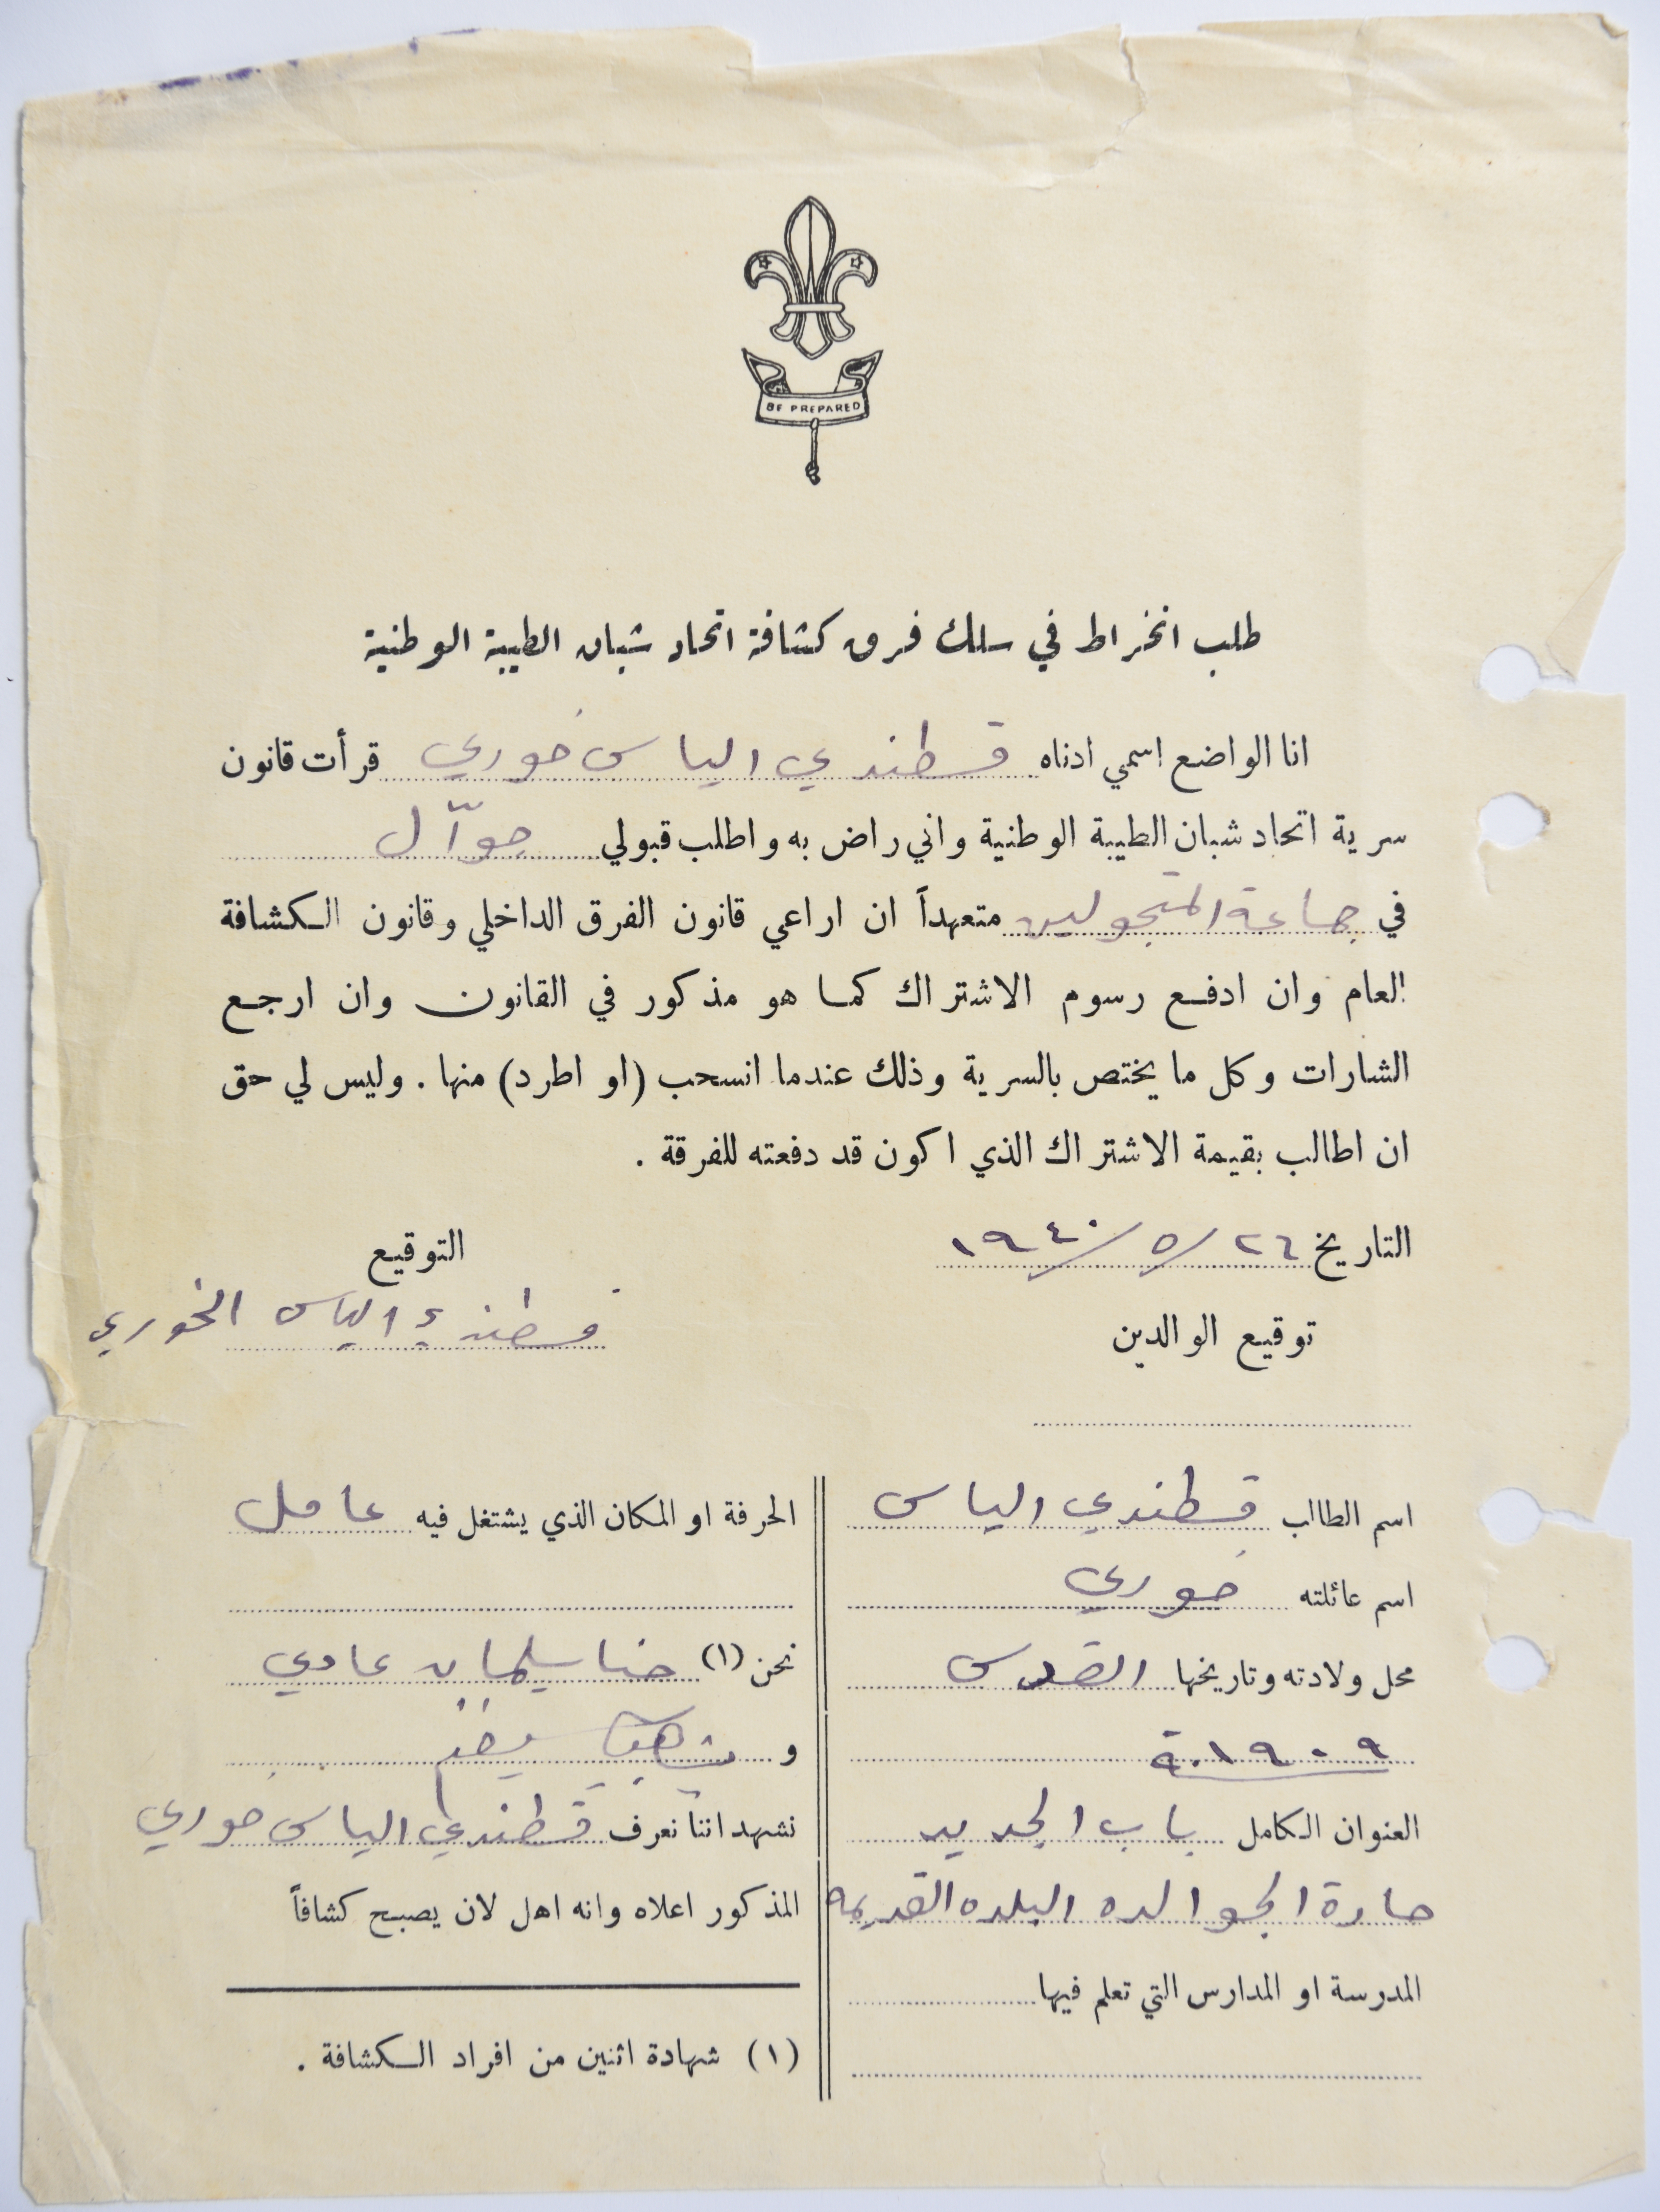 BE PREPARED
طلب انخراط في سلك فرق كشافة اتحاد شبان الطيبة الوطنية
انا الواضع اسمي ادناه قسطندي الياس خوري قرأت قانون
سرية اتحاد شبان الطيبة الوطنية واني راض به واطلب قبولي جوّال
في جماعة المتجولين متعهداً ان اراعي قانون الفرق الداخلي وقانون الكشافة
العام وان ادفع رسوم الاشتراك كما هو مذكور في القانون وان ارجع
الشارات وكل ما يختص بالسرية وذلك عندما انسحب (او اطرد) منها . وليس لي حق
ان اطالب بقيمة الاشتراك الذي اكون قد دفعته للفرقة .
التاريخ ٢٦/٥/١٩٤٠
التوقيع
قسطندي الياس الخوري
توقيع الوالدين
اسم الطالب قسطندي الياس
اسم عائلته خوري
محل ولادته وتاريخها القدس
١٩٠٩
العنوان الكامل باب الجديد
حارة الجوالده البلده القديمه
المدرسة او المدارس التي تعلم فيها
الحرفة او المكان الذي يشتغل فيه عامل
نحن (١) حنا سليمان عادي
و
نشهد اننا نعرف قسطندي الياس خوري
المذكور اعلاه وانه اهل لان يصبح كشافاً
(١) شهادة اثنين من افراد الكشافة .